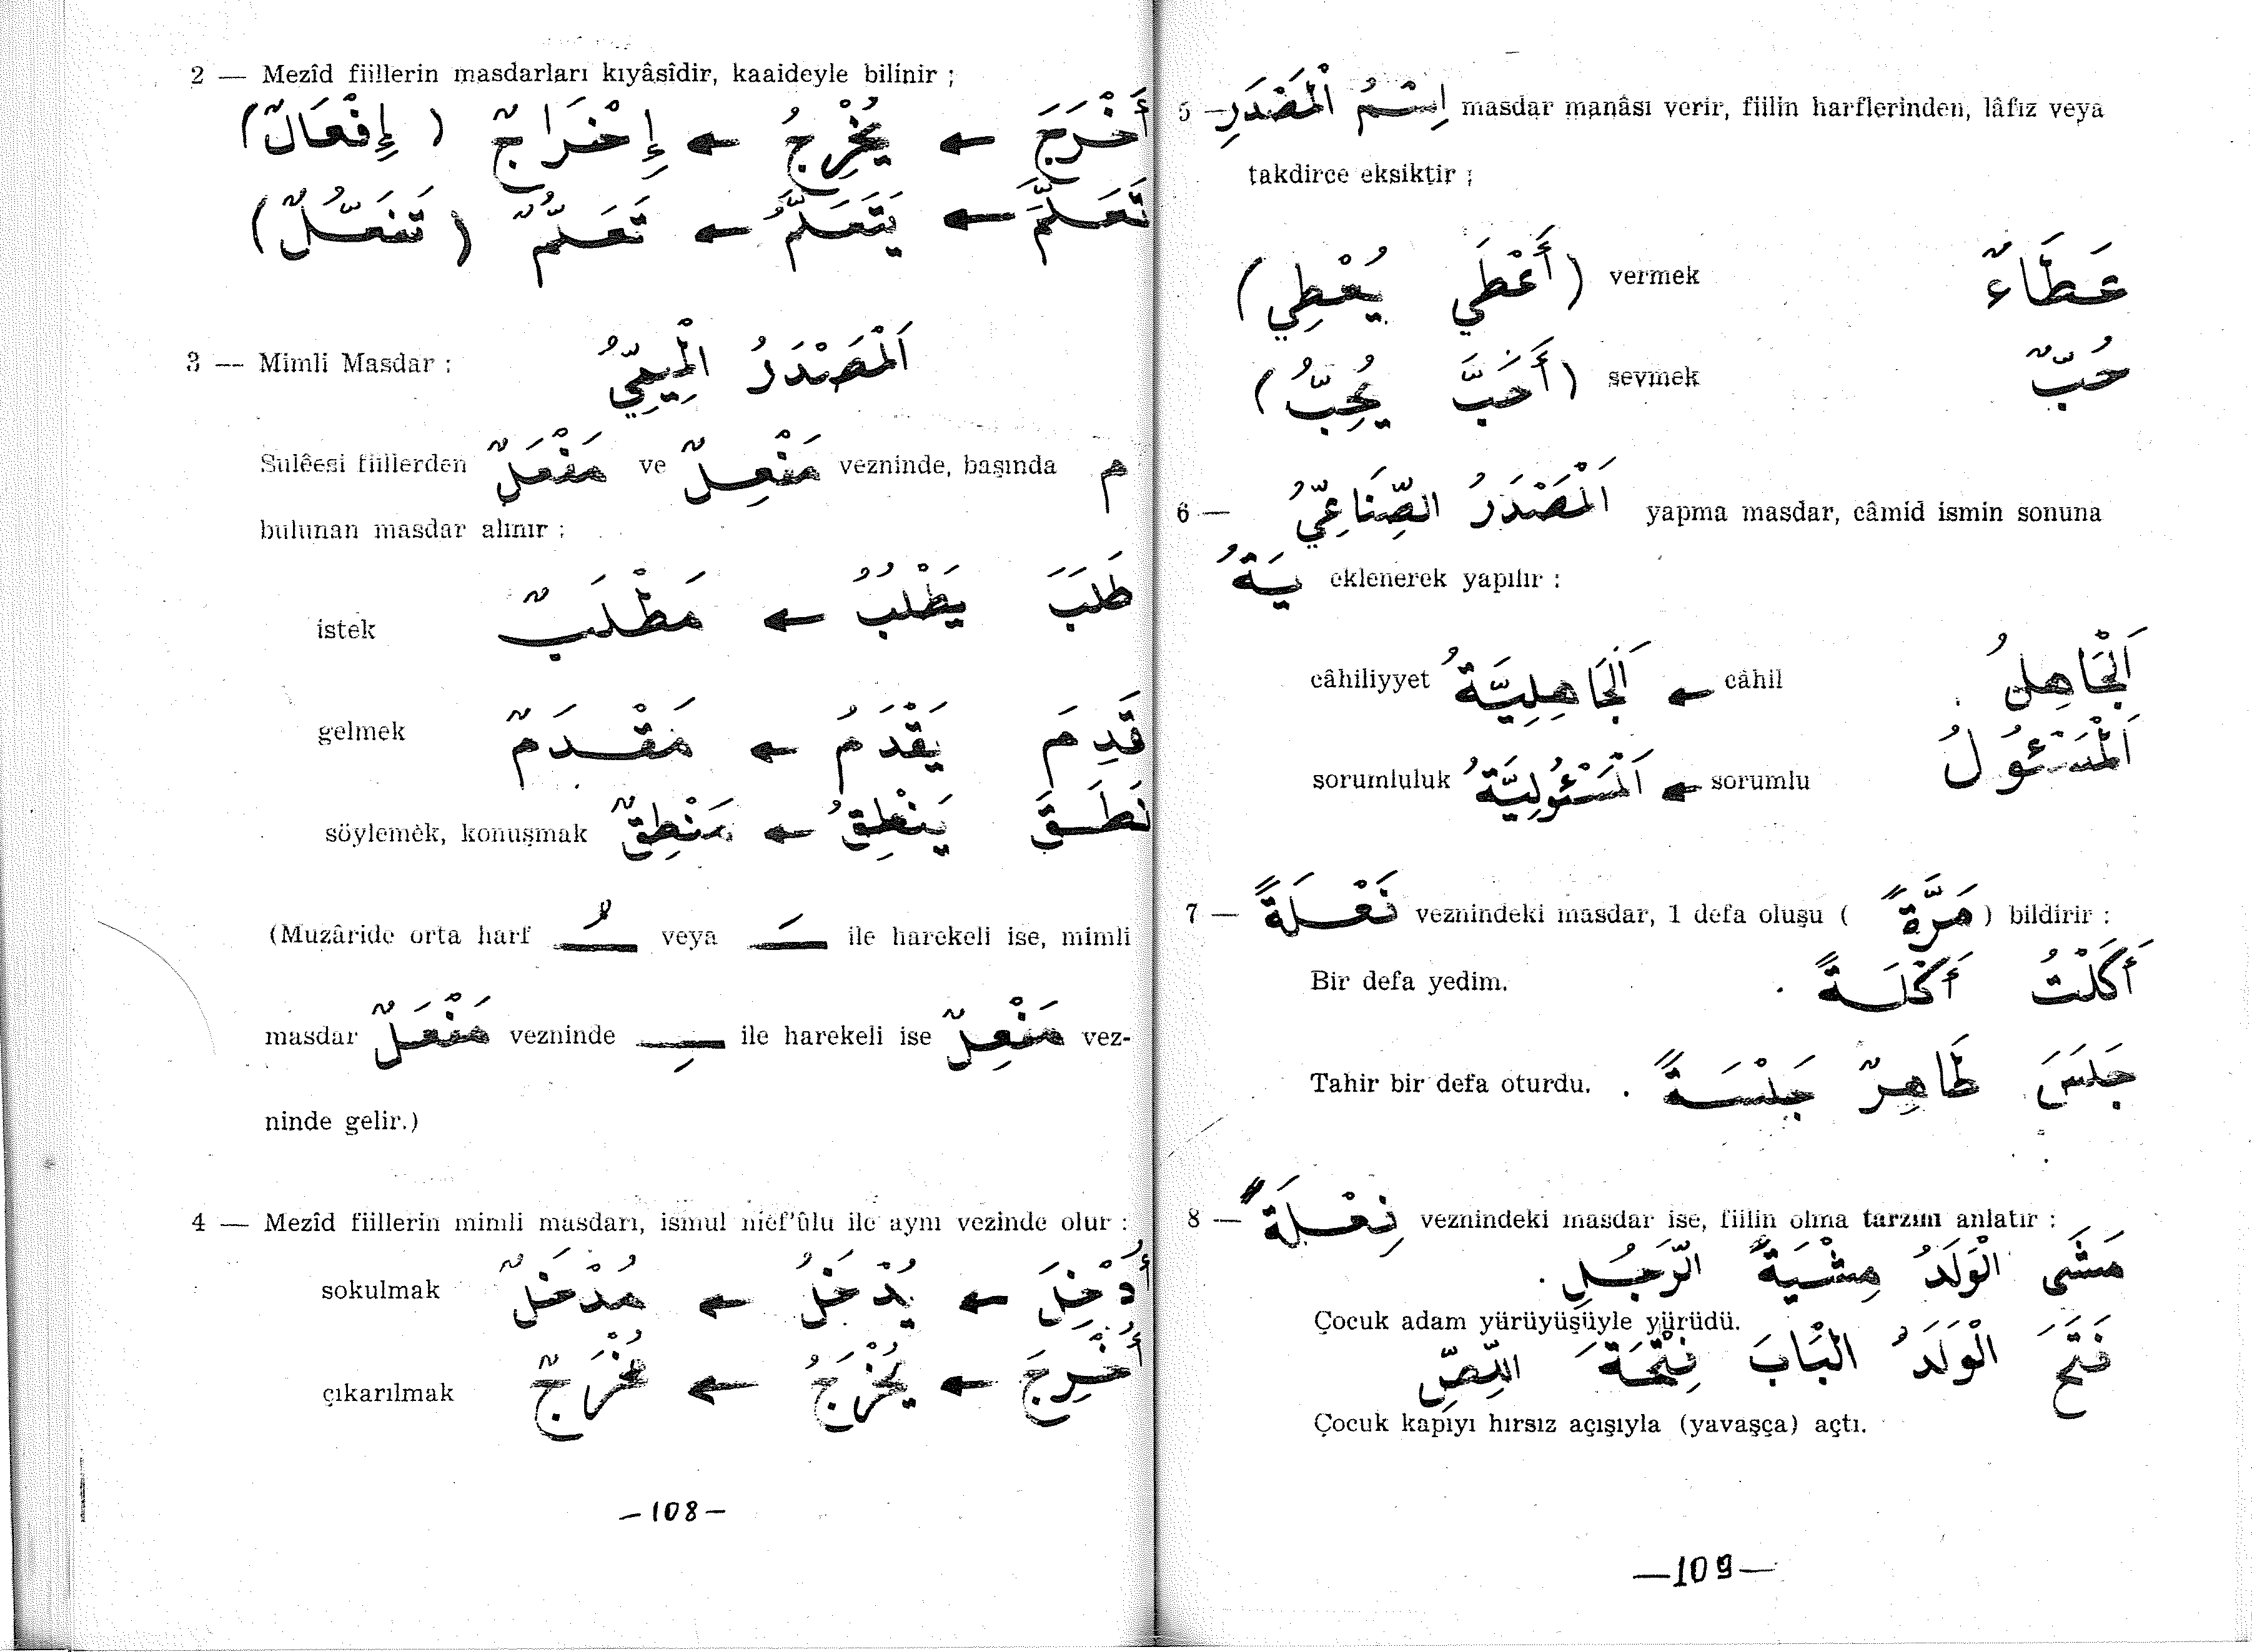 2 — Mezîd fiillerin masdarları kıyâsîdir, kaaideyle bilinir ;
أَخْرَجَ ← يُخْرِجُ ← إِخْرَاجٌ ( إِفْعَالٌ )
تَعَلَّمَ ← يَتَعَلَّمُ ← تَعَلُّمٌ ( تَفَعُّلٌ )
3 — Mimli Masdar : اَلْمَصْدَرُ الْمِيمِيُّ
Sulêesi fiillerden مَفْعَلٌ ve مَفْعِلٌ vezninde, başında م
bulunan masdar alınır :
طَلَبَ يَطْلُبُ ← مَطْلَبٌ istek
قَدِمَ يَقْدَمُ ← مَقْدَمٌ gelmek
نَطَقَ يَنْطِقُ ← مَنْطِقٌ söylemek, konuşmak
(Muzâride orta harf ـُ veya ـَ ile harekeli ise, mimli
masdar مَفْعَلٌ vezninde ـِ ile harekeli ise مَفْعِلٌ vez-
ninde gelir.)
4 — Mezîd fiillerin mimli masdarı, ismul mef'ûlu ile aynı vezinde olur :
أُدْخِلَ ← يُدْخَلُ ← مُدْخَلٌ sokulmak
أُخْرِجَ ← يُخْرَجُ ← مُخْرَجٌ çıkarılmak
—108—
5 — اِسْمُ الْمَصْدَرِ masdar manâsı verir, fiilin harflerinden, lâfız veya
takdirce eksiktir ;
عَطَاءٌ vermek ( أَعْطَي يُعْطِي )
حُبٌّ sevmek ( أَحَبَّ يُحِبُّ )
6 — اَلْمَصْدَرُ الصِّنَاعِيُّ yapma masdar, câmid ismin sonuna
يَةُ eklenerek yapılır :
اَلْجَاهِلُ câhil ← اَلْجَاهِلِيَّةُ câhiliyyet
اَلْمَسْئُولُ sorumlu ← اَلْمَسْئُولِيَّةُ sorumluluk
7 — فَعْلَةً veznindeki masdar, 1 defa oluşu ( مَرَّةً ) bildirir :
أَكَلْتُ أَكْلَةً . Bir defa yedim.
جَلَسَ طَاهِرٌ جَلْسَةً . Tahir bir defa oturdu.
8 — فِعْلَةً veznindeki masdar ise, fiilin olma tarzını anlatır :
مَشَى الْوَلَدُ مِشْيَةَ الرَّجُلِ .
Çocuk adam yürüyüşüyle yürüdü.
فَتَحَ الْوَلَدُ الْبَابَ فِتْحَةَ اللِّصِّ
Çocuk kapıyı hırsız açışıyla (yavaşça) açtı.
—109—